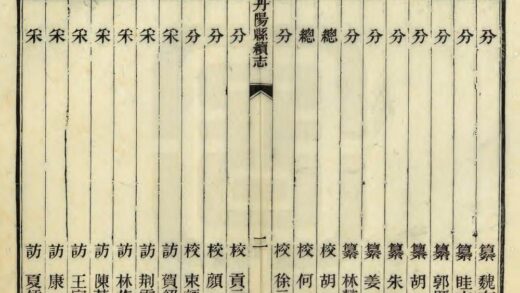 分纂魏
分纂眭
分纂郭
分纂胡
分纂朱
分纂姜
分纂林
總校胡
總校何
分校徐
丹陽縣續志 二
分校貢
分校顏
分校束
采訪賀
采訪荆
采訪林
采訪陳
采訪王
采訪康
采訪夏